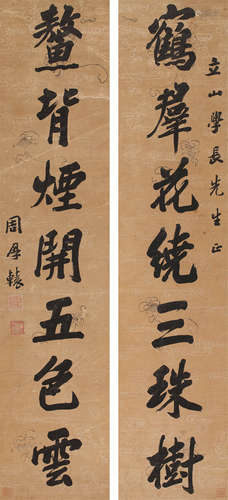 立山學長先生正
鶴羣花繞三珠樹
鼇背煙開五色雲
周厚轅